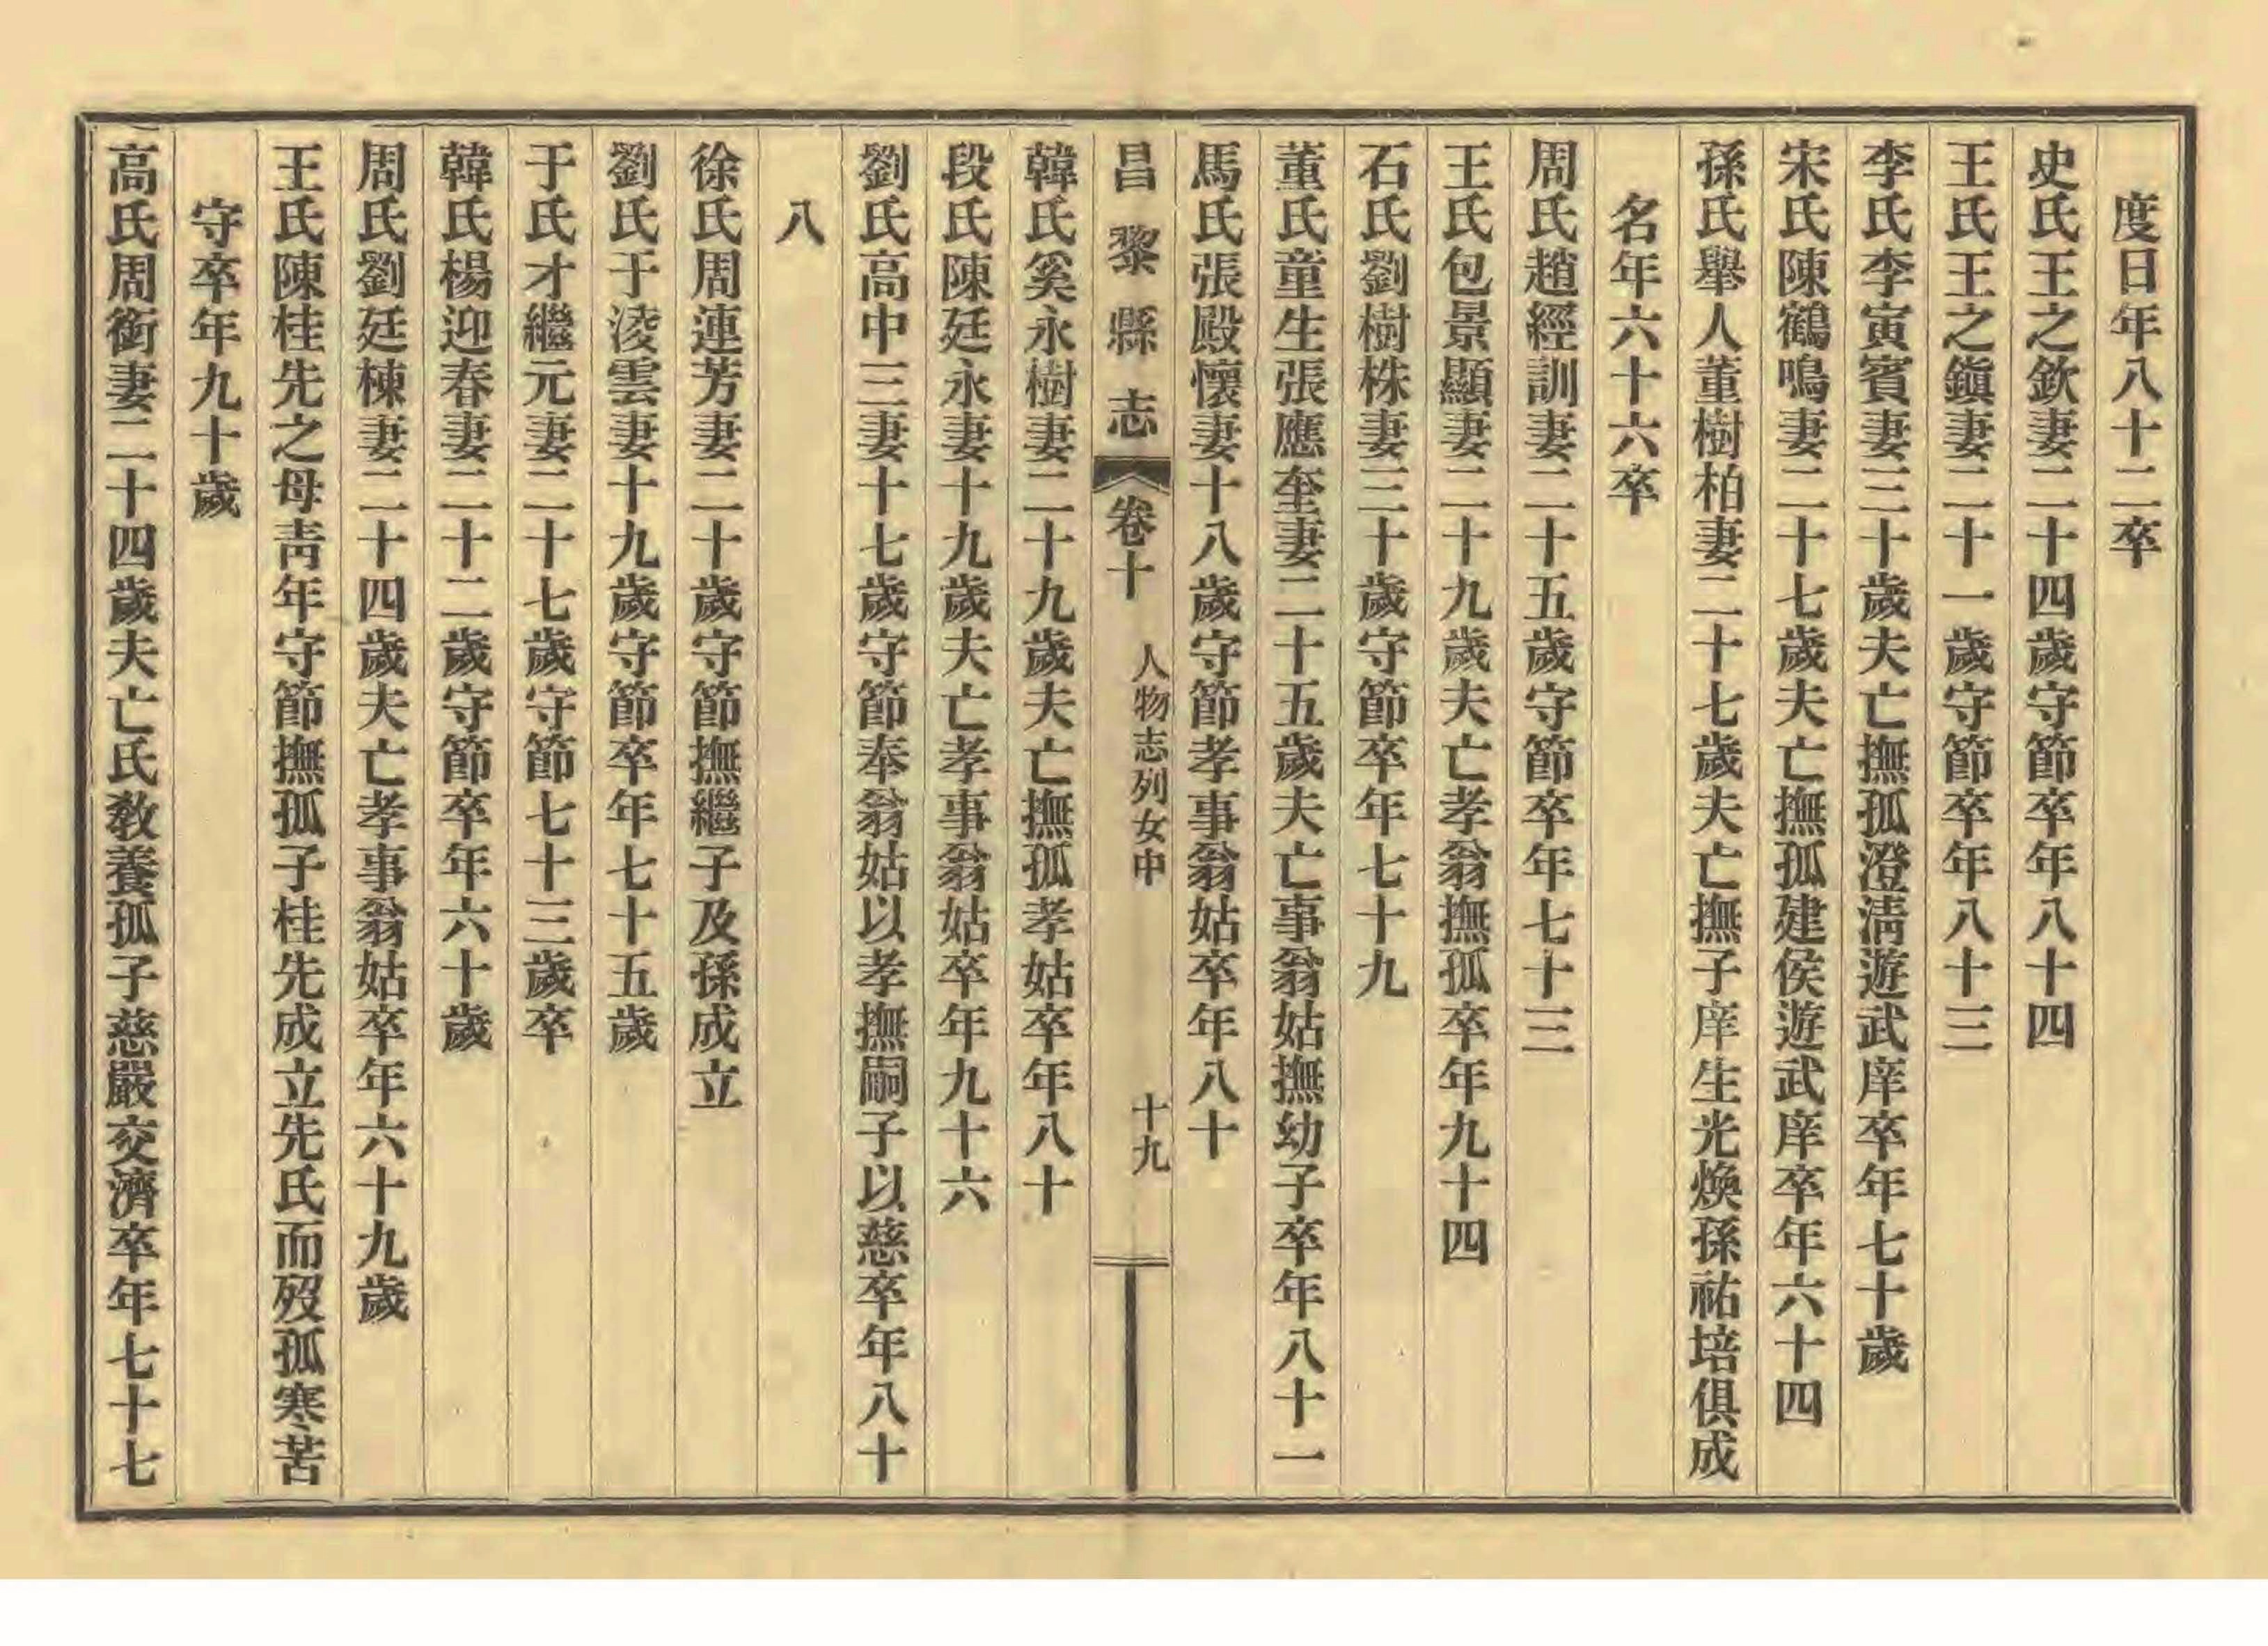 度日年八十二卒
史氏王之欽妻二十四歲守節卒年八十四
王氏王之鎭妻二十一歲守節卒年八十三
李氏李寅賓妻三十歲夫亡撫孤澄淸遊武庠卒年七十歲
宋氏陳鶴鳴妻二十七歲夫亡撫孤建侯遊武庠卒年六十四
孫氏舉人董樹柏妻二十七歲夫亡撫子庠生光煥孫祐培俱成
名年六十六卒
周氏趙經訓妻二十五歲守節卒年七十三
王氏包景顯妻二十九歲夫亡孝翁撫孤卒年九十四
石氏劉樹株妻三十歲守節卒年七十九
董氏童生張應奎妻二十五歲夫亡事翁姑撫幼子卒年八十一
馬氏張殿懷妻十八歲守節孝事翁姑卒年八十
昌黎縣志 卷十 人物志列女中 十九
韓氏奚永樹妻二十九歲夫亡撫孤孝姑卒年八十
段氏陳廷永妻十九歲夫亡孝事翁姑卒年九十六
劉氏高中三妻十七歲守節奉翁姑以孝撫嗣子以慈卒年八十
八
徐氏周連芳妻二十歲守節撫繼子及孫成立
劉氏于淩雲妻十九歲守節卒年七十五歲
于氏才繼元妻二十七歲守節七十三歲卒
韓氏楊迎春妻二十二歲守節卒年六十歲
周氏劉廷棟妻二十四歲夫亡孝事翁姑卒年六十九歲
王氏陳桂先之母靑年守節撫孤子桂先成立先氏而歿孤寒苦
守卒年九十歲
高氏周衝妻二十四歲夫亡氏敎養孤子慈嚴交濟卒年七十七